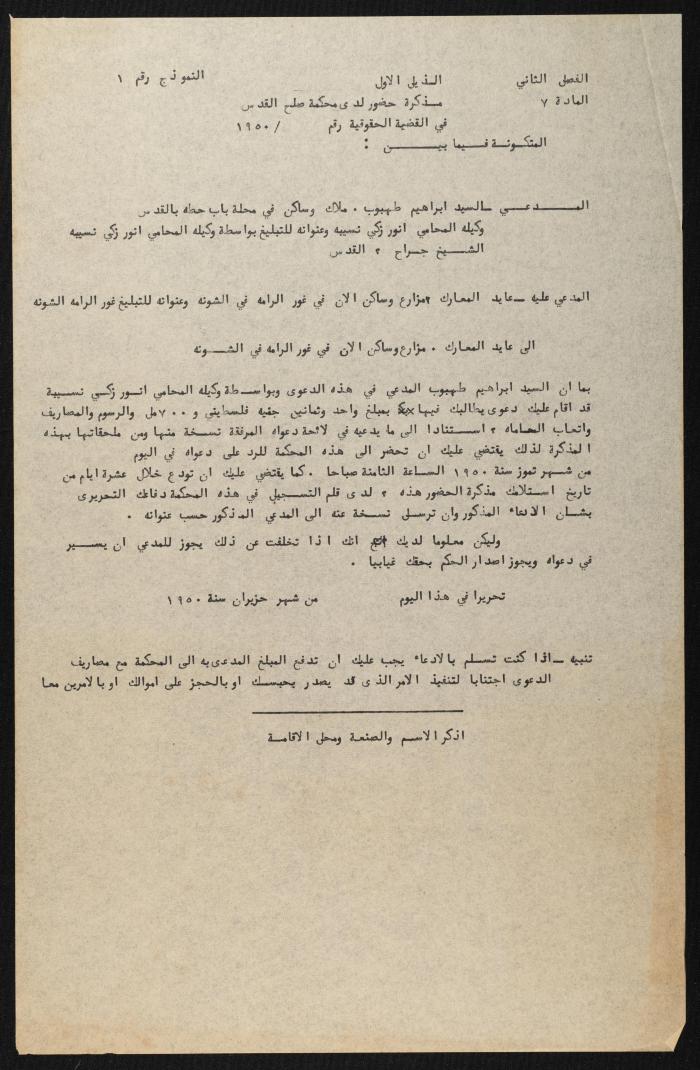 الفصل الثاني الذيل الاول النموذج رقم ١
المادة ٧ مذكرة حضور لدى محكمة صلح القدس
في القضية الحقوقية رقم /١٩٥٠
المتكونة فيما بين :
المدعي ـ السيد ابراهيم طهبوب . ملاك وساكن في محلة باب حطه بالقدس
وكيله المحامي انور زكي نسيبه وعنوانه للتبليغ بواسطة وكيله المحامي انور زكي نسيبه
الشيخ جراح ؟ القدس
المدعي عليه ـ عايد المعارك ؟مزارع وساكن الان في غور الرامه في الشونه وعنوانه للتبليغ غور الرامه الشونه
الى عايد المعارك . مزارع وساكن الان في غور الرامه في الشونه
بما ان السيد ابراهيم طهبوب المدعي في هذه الدعوى وبواسطة وكيله المحامي انور زكي نسيبة
قد اقام عليك دعوى يطالبك فيها بمبلغ واحد وثمانين جنيه فلسطيني و ٧٠٠مل والرسوم والمصاريف
واتعاب المحاماه ؟ استنادا الى ما يدعيه في لائحة دعواه المرفقة نسخة منها ومن ملحقاتها بهذه
المذكرة لذلك يقتضي عليك ان تحضر الى هذه المحكمة للرد على دعواه في اليوم
من شهر تموز سنة ١٩٥٠ الساعة الثامنة صباحا . كما يقتضي عليك ان تودع خلال عشرة ايام من
تاريخ استلامك مذكرة الحضور هذه ؟ لدى قلم التسجيل في هذه المحكمة دفاعك التحريرى
بشان الادعاء المذكور وان ترسل نسخة عنه الى المدعي المذكور حسب عنوانه .
وليكن معلوما لديك انك اذا تخلفت عن ذلك يجوز للمدعي ان يسير
في دعواه ويجوز اصدار الحكم بحقك غيابيا .
تحريرا في هذا اليوم من شهر حزيران سنة ١٩٥٠
تنبيه ـ اذا كنت تسلم بالادعاء يجب عليك ان تدفع المبلغ المدعى به الى المحكمة مع مصاريف
الدعوى اجتنابا لتنفيذ الامر الذى قد يصدر بحبسك او بالحجز على اموالك او بالامرين معا
اذكر الاسم والصنعة ومحل الاقامة